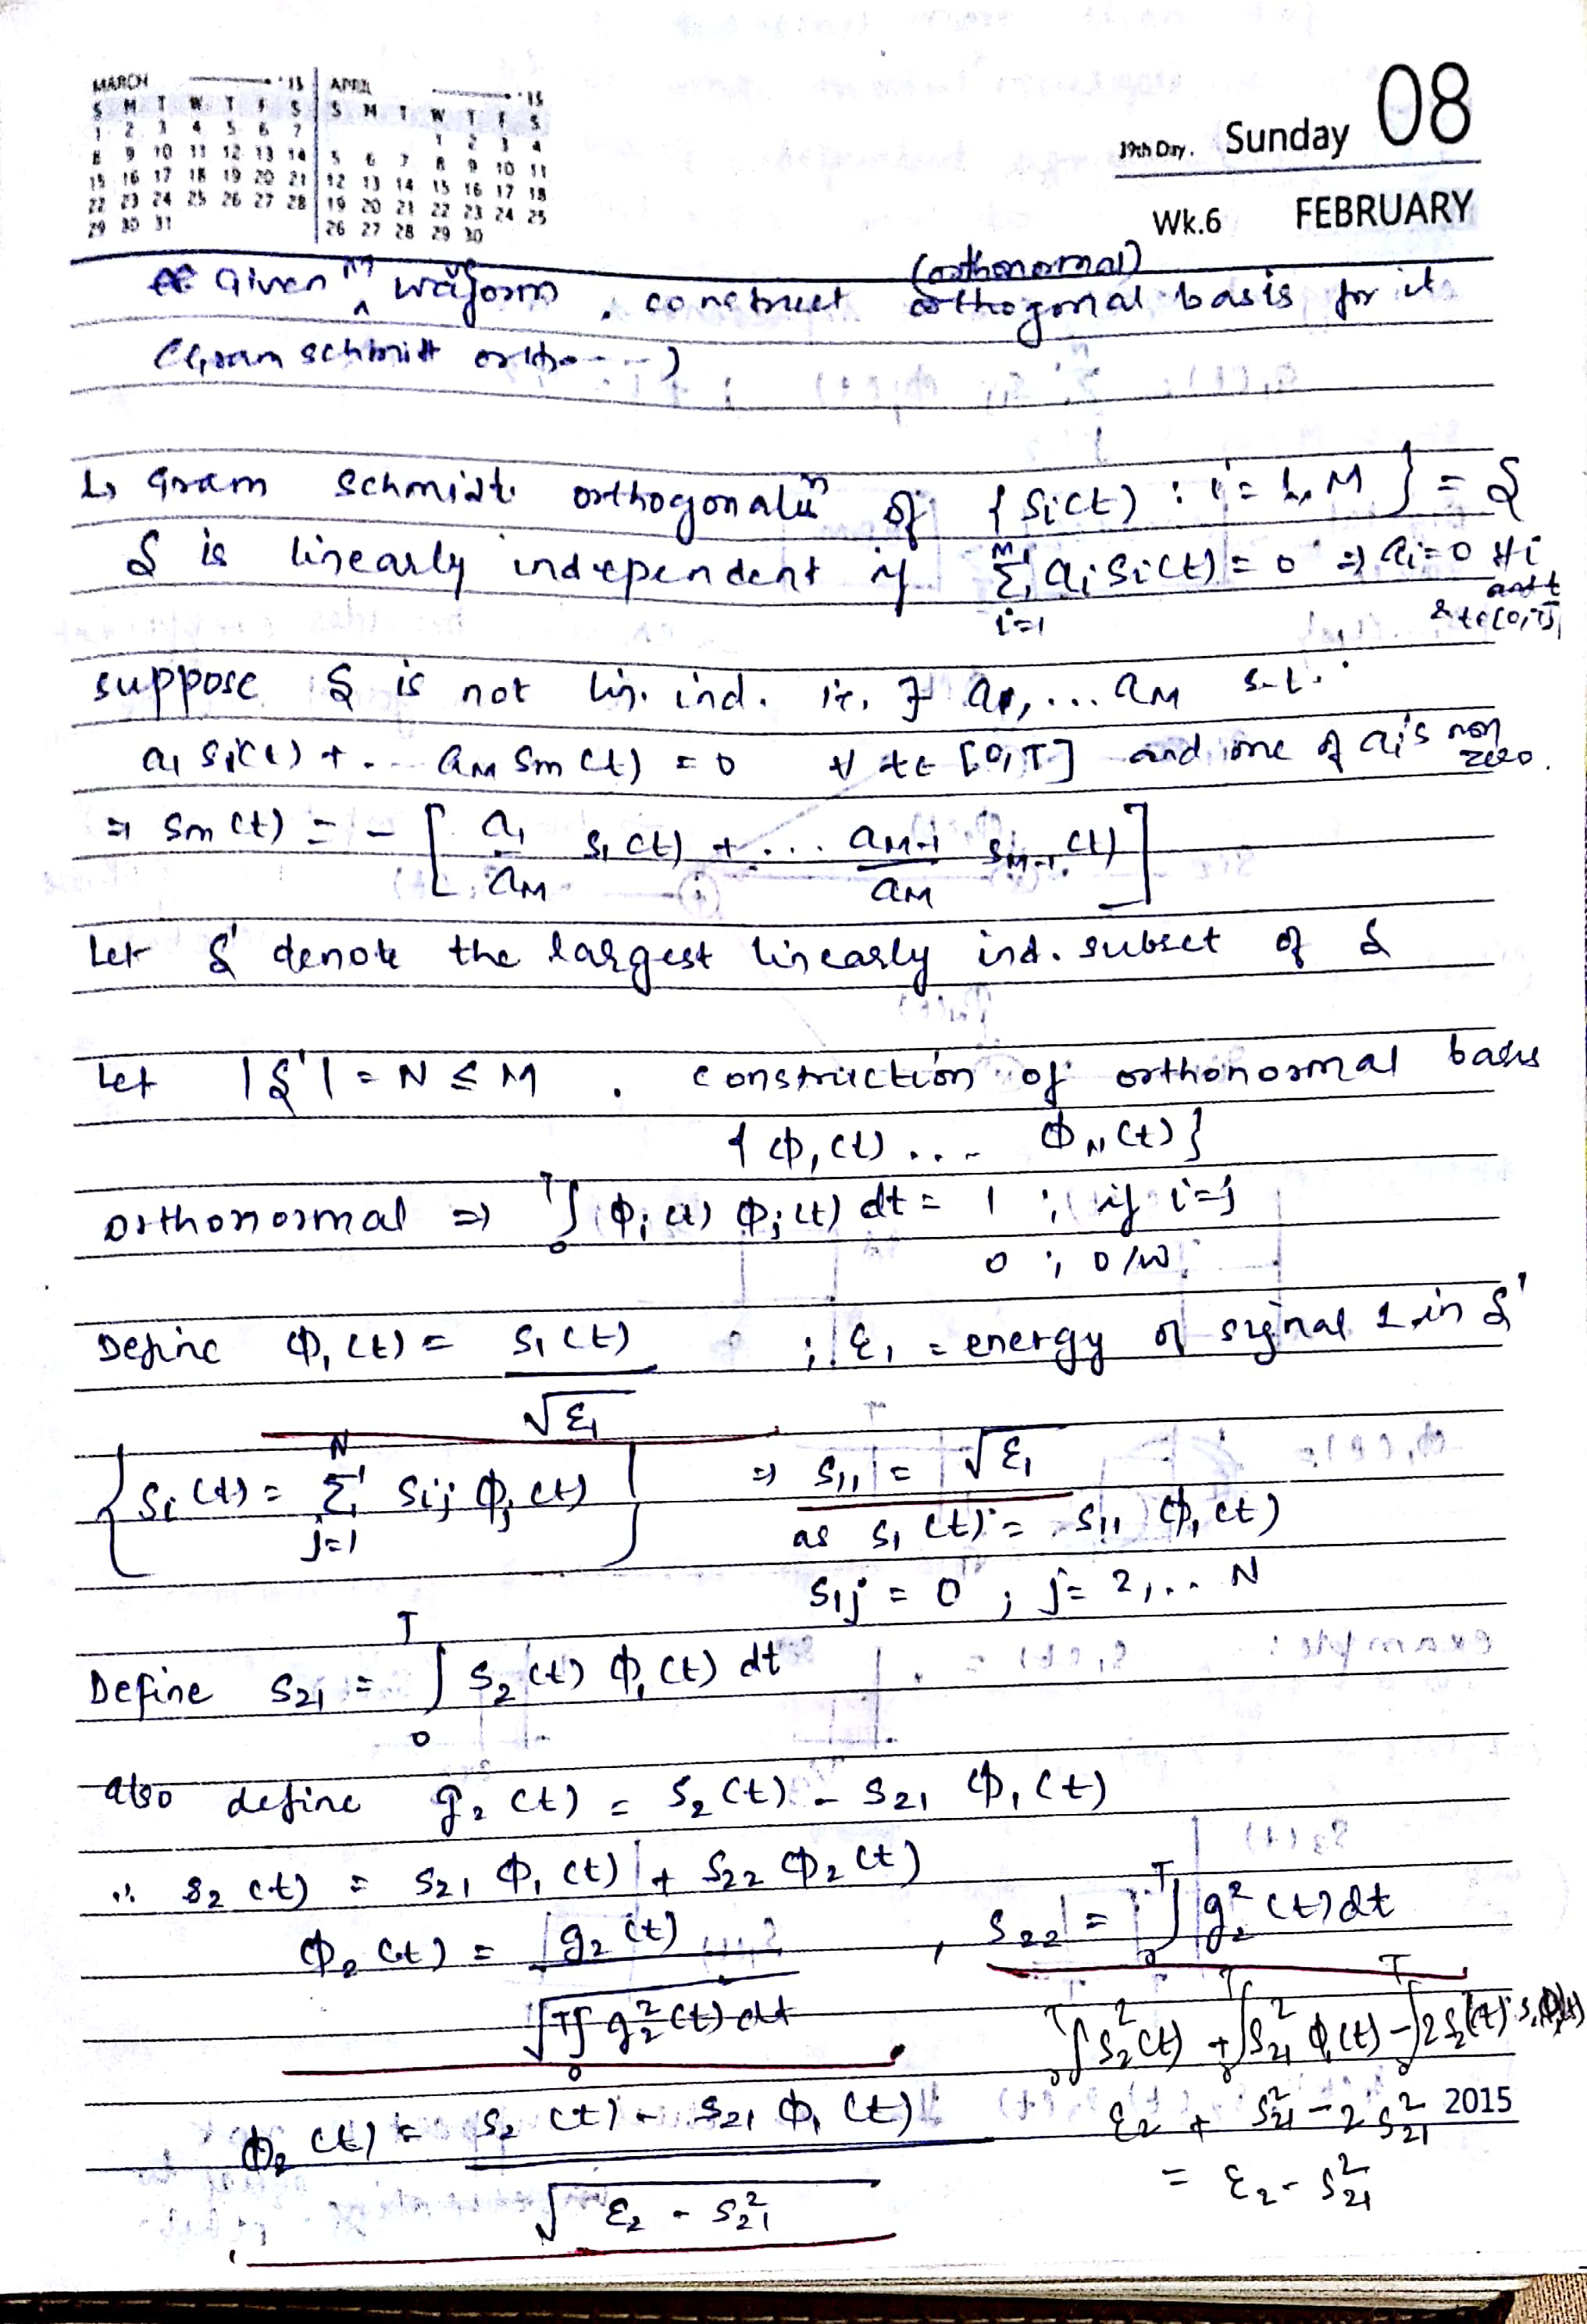 MARCH '15 APRIL '15
S M T W T F S S M T W T F S
1 2 3 4 5 6 7 1 2 3 4
8 9 10 11 12 13 14 5 6 7 8 9 10 11
15 16 17 18 19 20 21 12 13 14 15 16 17 18
22 23 24 25 26 27 28 19 20 21 22 23 24 25
29 30 31 26 27 28 29 30
39th Day. Sunday 08
Wk.6 FEBRUARY
(orthonormal)
Given M waveform, construct orthogonal basis for it
(Gram schmitt ortho---)
↳ Gram Schmidt orthogonaliⁿ of { Si(t) : i = 1,.. M } = S
S is linearly independent if Σ_{i=1}^{M} ai si(t) = 0 ⇒ ai = 0 ∀ i
& t ∈ [0,T]
suppose S is not lin. ind. i.e. ∃ a1, ... aM s.t.
a1 s1(t) + ... aM sm(t) = 0 ∀ t ∈ [0,T] and one of ai's non zero.
⇒ sm(t) = - [ a1/aM s1(t) + ... aM-1/aM sM-1(t) ]
Let S' denote the largest linearly ind. subset of S
Let |S'| = N ≤ M . construction of orthonormal basis
{ Φ1(t) ... ΦN(t) }
orthonormal ⇒ ∫_0^T Φi(t) Φj(t) dt = 1 ; if i=j
0 ; o/w.
Define Φ1(t) = s1(t)/√ε1 ; ε1 = energy of signal 1 in S'
{ Si(t) = Σ_{j=1}^{N} Sij Φj(t) } ⇒ S11 = √ε1
as s1(t) = S11 Φ1(t)
S1j = 0 ; j = 2,.. N
Define S21 = ∫_0^T S2(t) Φ1(t) dt
also define g2(t) = S2(t) - S21 Φ1(t)
∴ S2(t) = S21 Φ1(t) + S22 Φ2(t)
Φ2(t) = g2(t)/√(∫_0^T g2²(t) dt) , S22 = ∫_0^T g2²(t) dt
∫_0^T S2²(t) + ∫_0^T S21² Φ1(t) - ∫_0^T 2 S2(t)
Φ2(t) = (S2(t) - S21 Φ1(t))/√(ε2 - S21²)
ε2 + S21² - 2 S21²
= ε2 - S21²
2015